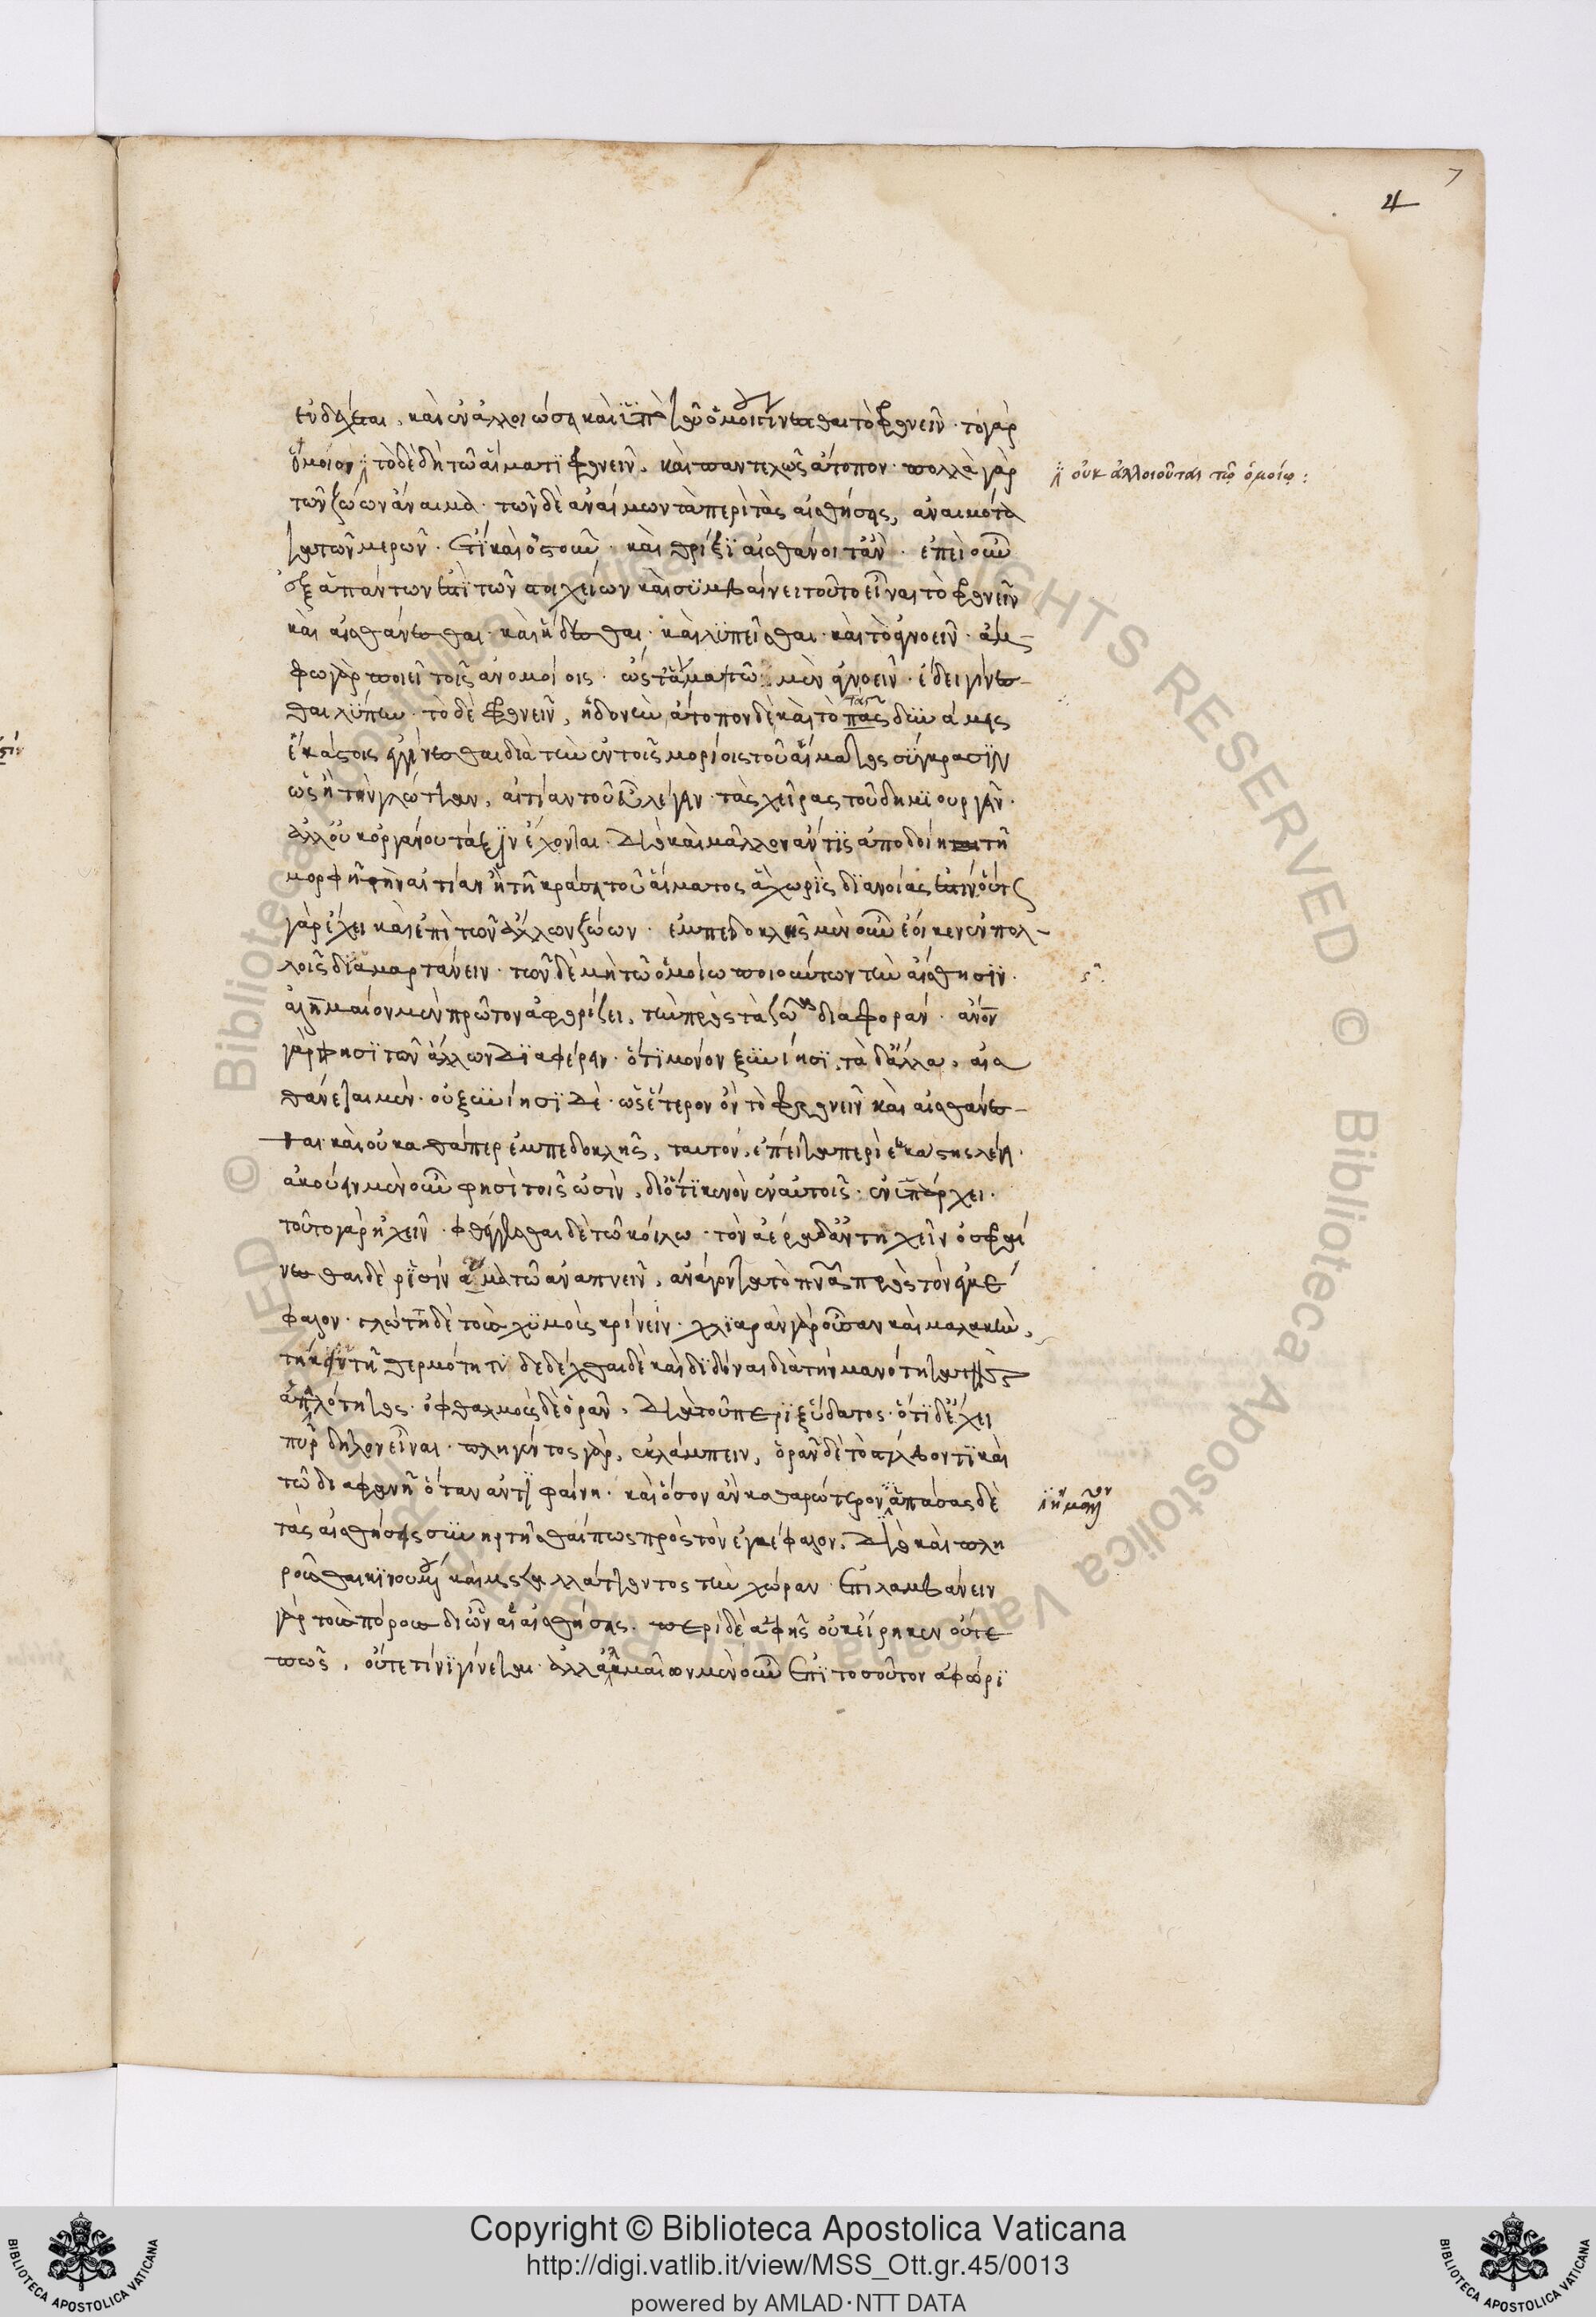 ἐνδέχεται, καὶ ἐν ἀλλοιώσει καὶ ὑπὸ τοῦ ὁμοίου γίνεσθαι τὸ φρονεῖν · τὸ γὰρ
ὅμοιον τὸ δὲ δὴ τῶ αἵματι φρονεῖν, καὶ παντελῶς ἄτοπον · πολλὰ γὰρ
οὐκ ἀλλοιοῦται τῷ ὁμοίῳ :
τῶν ζώων ἄναιμα · τῶν δὲ ἐναίμων τὰ περὶ τὰς αἰσθήσεις, ἀναιμότα
τα τῶν μερῶν · ἔτι καὶ ὀστοῦν · καὶ θρὶξ αἰσθάνοιτ' ἂν · ἐπεὶ οὖν
ἐξ ἁπάντων ἐστὶ τῶν στοιχείων καὶ συμβαίνει τοῦτο εἶναι τὸ φρονεῖν
καὶ αἰσθάνεσθαι · καὶ ἥδεσθαι · καὶ λυπεῖσθαι · καὶ τὸ ἀγνοεῖν · ἄμ-
φω γὰρ ποιεῖ τοῖς ἀνομοίοις · ὥσθ' ἅμα τῶ μὲν ἀγνοεῖν · ἔδει γίνεσ-
θαι λύπην · τὸ δὲ φρονεῖν, ἡδονὴν, ἄτοπον δὲ καὶ τὸ τὰς δυνάμεις
ἑκάστοις ἐγγίνεσθαι διὰ τὴν ἐν τοῖς μορίοις τοῦ αἵματος σύγκρασιν
ὡς ἢ τὴν γλῶτταν, αἰτίαν τοῦ εὖ λέγειν · τὰς χεῖρας τοῦ δημιουργεῖν ·
ἀλλ' οὐκ ὀργάνου τάξιν ἔχονται · διὸ καὶ μᾶλλον ἄν τις ἀποδοίη τῆ
μορφῆ τὴν αἰτίαν ἢ τῆ κράσει τοῦ αἵματος ἃ χωρὶς διανοίας ἐστὶν οὕτως
γὰρ ἔχει καὶ ἐπὶ τῶν ἄλλων ζώων · ἐμπεδοκλῆς μὲν οὖν ἔοικεν ἐν πολ-
λοῖς διαμαρτάνειν · τῶν δὲ μὴ τῶ ὁμοίω ποιούντων τὴν αἴσθησιν ·
ἀλκμαίον μὲν πρῶτον ἀφορίζει, τὴν πρὸς τὰ ζῶα διαφοράν · ἄνον
γὰρ φησὶ τῶν ἄλλων διαφέρειν · ὅτι μόνον ξυνίησι, τὰ δ' ἄλλα, αἰσ
θάνεται μὲν · οὐ ξυνίησι δὲ · ὡς ἕτερον ὂν τὸ φρονεῖν καὶ αἰσθάνεσ-
θαι καὶ οὐ καθάπερ ἐμπεδοκλῆς, ταυτόν, ἔπειτα περὶ ἑκάστης λέγει ·
ἀκούειν μὲν οὖν φησὶ τοῖς ὠσὶν, διότι κενὸν ἐν αὐτοῖς · ἐνυπάρχει ·
τοῦτο γὰρ ἠχεῖν · φθέγγεσθαι δὲ τῶ κοίλω · τὸν ἀέρα δ' ἀντηχεῖν ὀσφραί
νεσθαι δὲ ῥισὶν ἅμα τῶ ἀναπνεῖν, ἀνάγοντα τὸ πνα πρὸς τὸν ἐγκέ
φαλον · γλώττη δὲ τοὺς χυμοὺς κρίνειν · χλιαρὰν γὰρ οὖσαν καὶ μαλακὴν,
τήκειν τῆ θερμότητι δέδεχθαι δὲ καὶ διδόναι διὰ τὴν μανότητα τῆς
ἁπλότητος · ὀφθαλμοὺς δὲ ὁρᾶν, διὰ τοῦ πέριξ ὕδατος · ὅτι δ' ἔχει
πῦρ δῆλον εἶναι · πληγέντος γὰρ, ἐκλάμπειν, ὁρᾶν δὲ τὸ στίλβοντι καὶ
τῶ διαφανῆ ὅταν ἀντιφαίνη · καὶ ὅσον ἂν καθαρώτερον ἁπάσας δὲ
τὰς αἰσθήσεις συνηρτῆσθαί πως πρὸς τὸν ἐγκέφαλον, διὸ καὶ πλη
ροῦσθαι κινουμένου καὶ μεταλλάττοντος τὴν χώραν · ἐπιλαμβάνειν
γὰρ τοὺς πόρους δι' ὧν αἱ αἰσθήσεις · περὶ δὲ ἁφῆς οὐκ εἴρηκεν οὔτε
πῶς, οὔτε τίνι γίνεται · ἀλλ' ἀλκμαίων μὲν οὖν ἐπὶ τοσοῦτον ἀφώρι
Copyright © Biblioteca Apostolica Vaticana
http://digi.vatlib.it/view/MSS_Ott.gr.45/0013
powered by AMLAD·NTT DATA
BIBLIOTECA APOSTOLICA VATICANA
BIBLIOTECA APOSTOLICA VATICANA